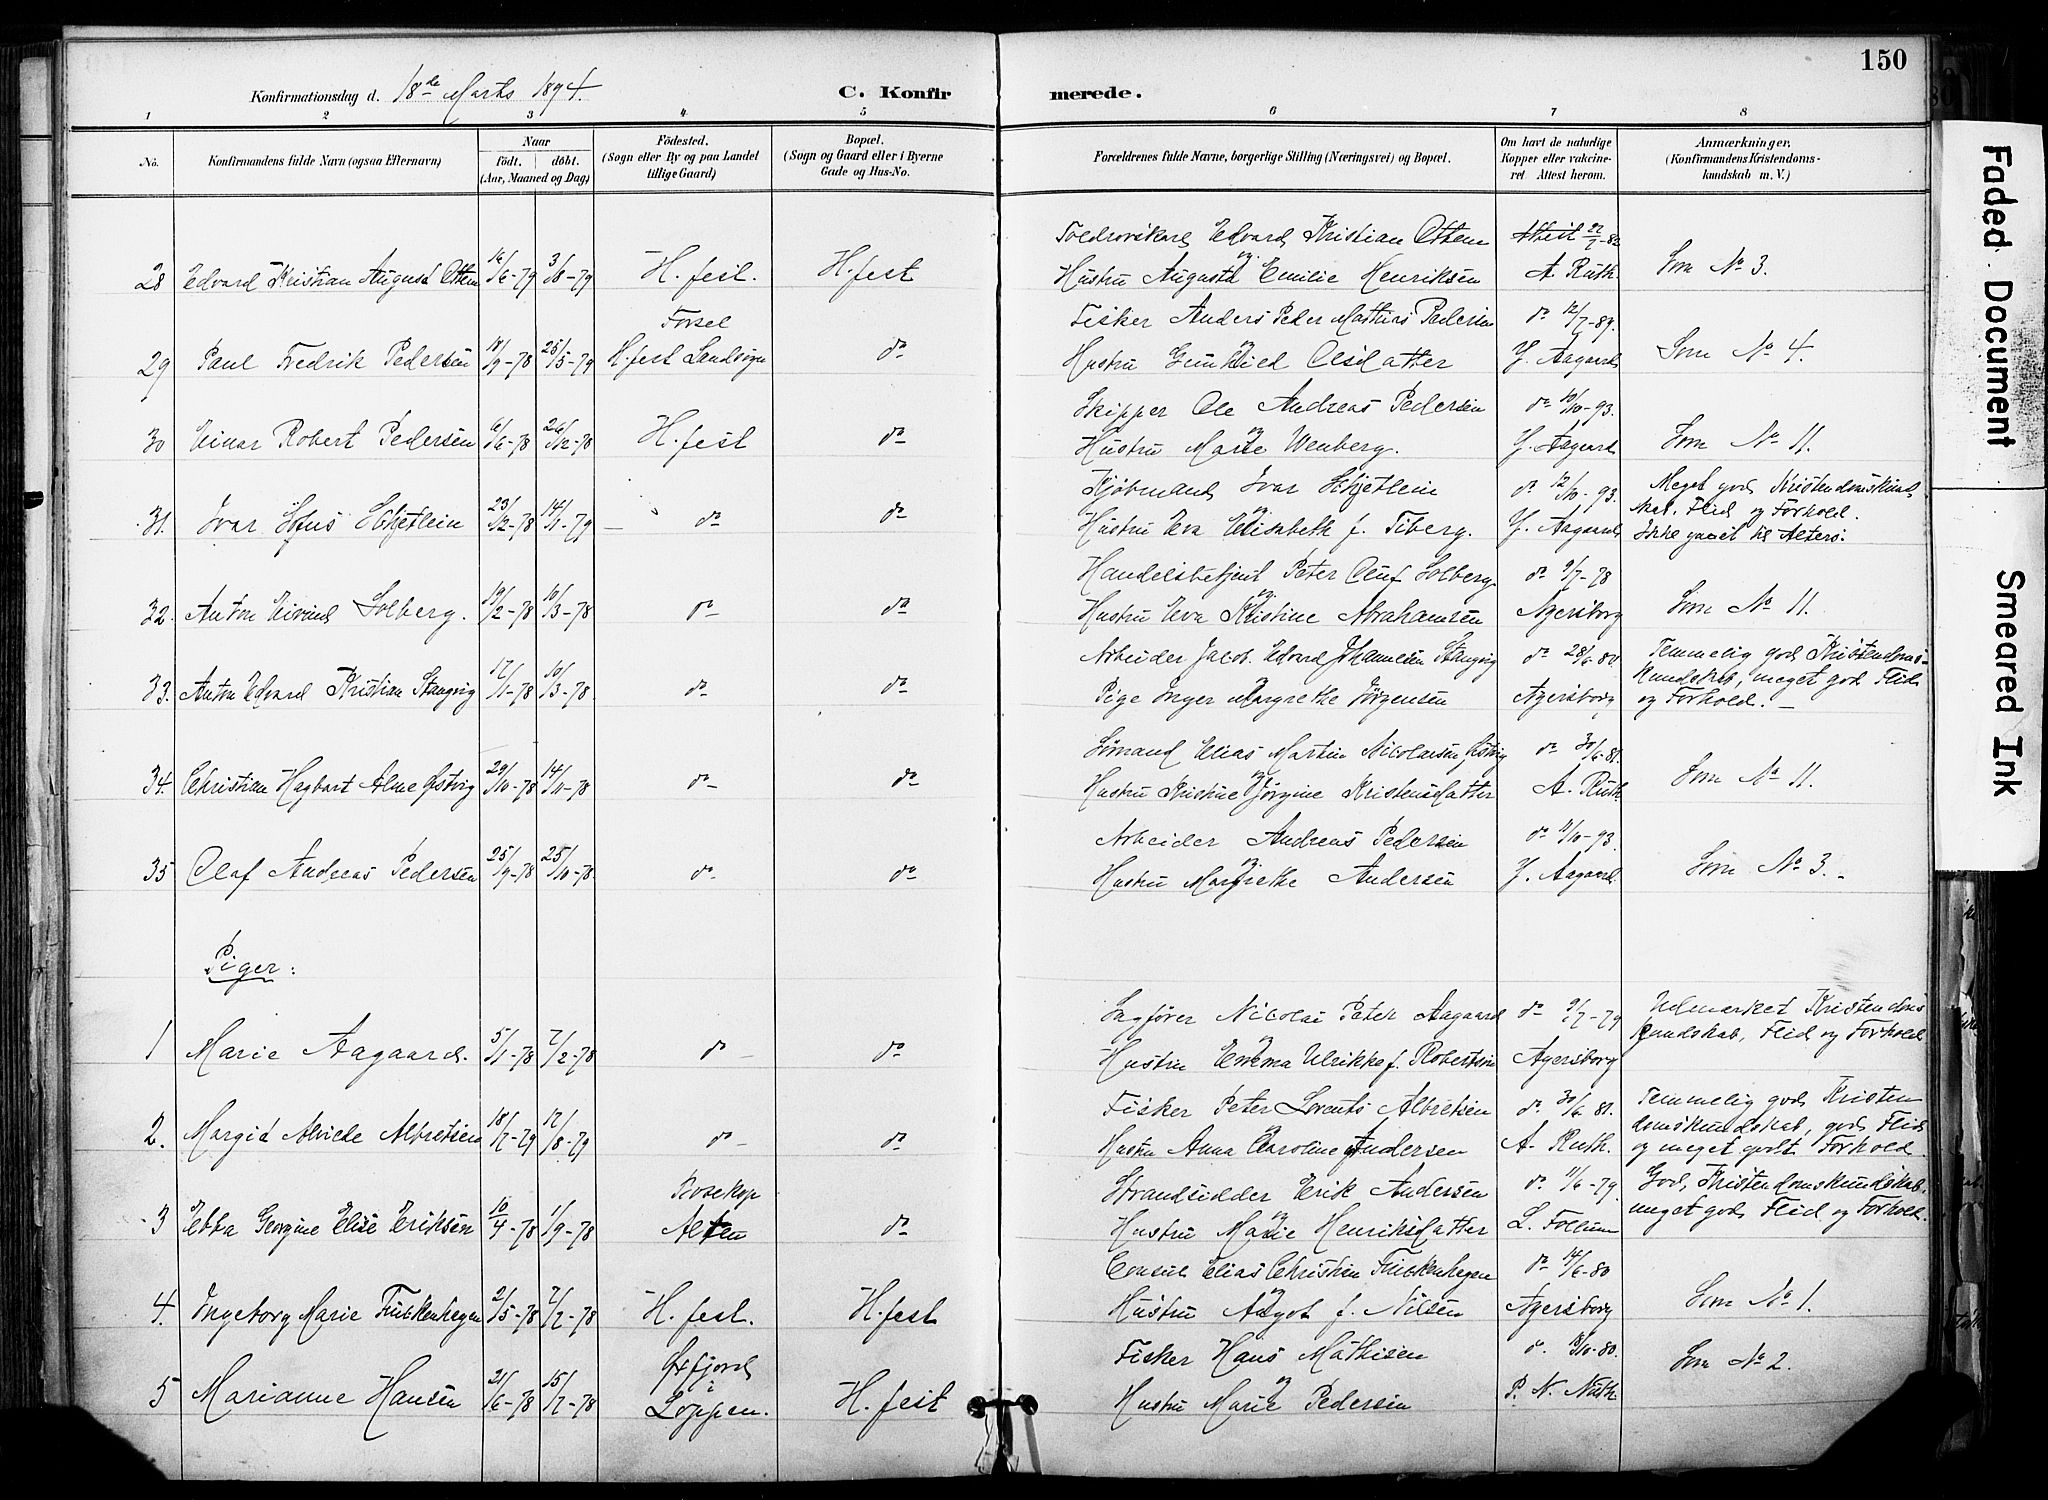 150
Konfirmationsdag d. 18de Marts 1894.
C. Konfirmerede.
1 2 3 4 5 6 7 8
No.
Konfirmandens fulde Navn (ogsaa Efternavn)
Naar
födt. döbt.
(Aar, Maaned og Dag)
Födested.
(Sogn eller By og paa Landet
tillige Gaard)
Bopæl.
(Sogn og Gaard eller i Byerne
Gade og Hus-No.
Forældrenes fulde Navne, borgerlige Stilling (Næringsvei) og Bopæl.
Om havt de naturlige
Kopper eller vakcine-
ret Attest herom.
Anmærkninger.
(Konfirmandens Kristendoms-
kundskab m. V.)
Edvard Kristian Otten Attest 22/7-82
28 Edvard Kristian August Otten 16/6-79 3/8-79 H.fest. H.fest Hustru Augusta Emilie Henriksen A. Ruth. Som No 3.
Forsøl Fisker Anders Peder Mathias Pedersen do 12/7-89.
29 Paul Fredrik Pedersen 18/9-78 25/5-79 H.fest Landsogn do Hustru Gunhild Olsdatter Y. Aagaard Som No 4.
Skipper Ole Andreas Pedersen do 10/10-93.
30 Einar Robert Pedersen 6/6-78 26/12-78 H.fest do Hustru Marie Wenberg. Y. Aagaard Som No 11.
Kjöbmand Ivar Schjetlein do 12/10-93. Meget god Kristendomskund-
31. Ivar Schjetlein 23/12-78 14/1-79 do do og Hustru Eva Elisabeth f. Tiberg. Y. Aagaard skab. Flid og Forhold.
Ikke gaaet til Alters.
Handelsbetjent Peter Oluf Solberg do 9/7-78
32. Anton Eivind Solberg. 19/2-78 10/3-78 do do Hustru Eva Kristine Abrahamsen Agersborg Som No 11.
Arbeider Jacob Edvard Johannesen Stangvig do 28/6-80. Temmelig god Kristendoms-
33. Anton Edvard Kristian Stangvig 17/1-78 10/3-78. do do Pige Inger Margrethe Jörgensen Agersborg kundskab, meget god Flid
og Forhold.
Sömand Elias Martin Nicolaisen Östvig do 30/6-81.
34. Christian Hagbart Alme Östvig 29/10-78 14/11-78 do do Hustru Kristine Jörgine Kristensdatter A. Ruth Som No 11.
Arbeider Andreas Pedersen do 11/10-93.
35 Olaf Andreas Pedersen 25/9-78 25/10-78. do do Hustru Margrethe Andersen Y. Aagaard. Som No 3.
Piger:
Sagförer Nicolai Peter Aagaard do 9/7-79 Udmærket Kristendoms
1 Marie Aagaard. 5/1-78 7/2-78 do do Hustru Emma Ulrikke f. Robertson Agersborg kundskab, Flid og Forhold
Fisker Peter Lorents Albretsen do 30/6 81. Temmelig god Kristen
2. Margid Alvide Albretsen 18/7-79 17/8-79 do do Hustru Anna Caroline Andersen A. Ruth. domskundskab, god Flid
og meget godt Forhold.
Bosekop Strandsidder Erik Andersen do 11/6-79. God Kristendomskundskab,
3 Ebba Georgine Elise Eriksen 10/4-78 1/9-78 Alten do Hustru Marie Henriksdatter L. Follum meget god Flid og Forhold.
Consul Elias Christian Finckenhagen do 14/6-80
4. Ingeborg Marie Finckenhagen 2/5-78 7/7-78 H.fest. H.fest Hustru f. Nilsen Agersborg Som No 1.
Öxfjord Fisker Hans Mathisen do 18/10-80.
5 Marianne Hansen 21/6-78 15/7-78 i Loppen. H.fest Hustru Marie Pedersen P. N. Som No 2.
Faded Document
Smeared Ink